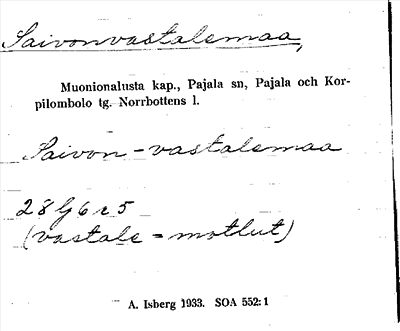 Saivonvastalemaa,
Muonionalusta kap., Pajala sn, Pajala och Kor-
pilombolo tg. Norrbottens l.
Saivon-vastalemaa
28 Lj 6 r 5
(vastale = motlut)
A. Isberg 1933. SOA 552:1